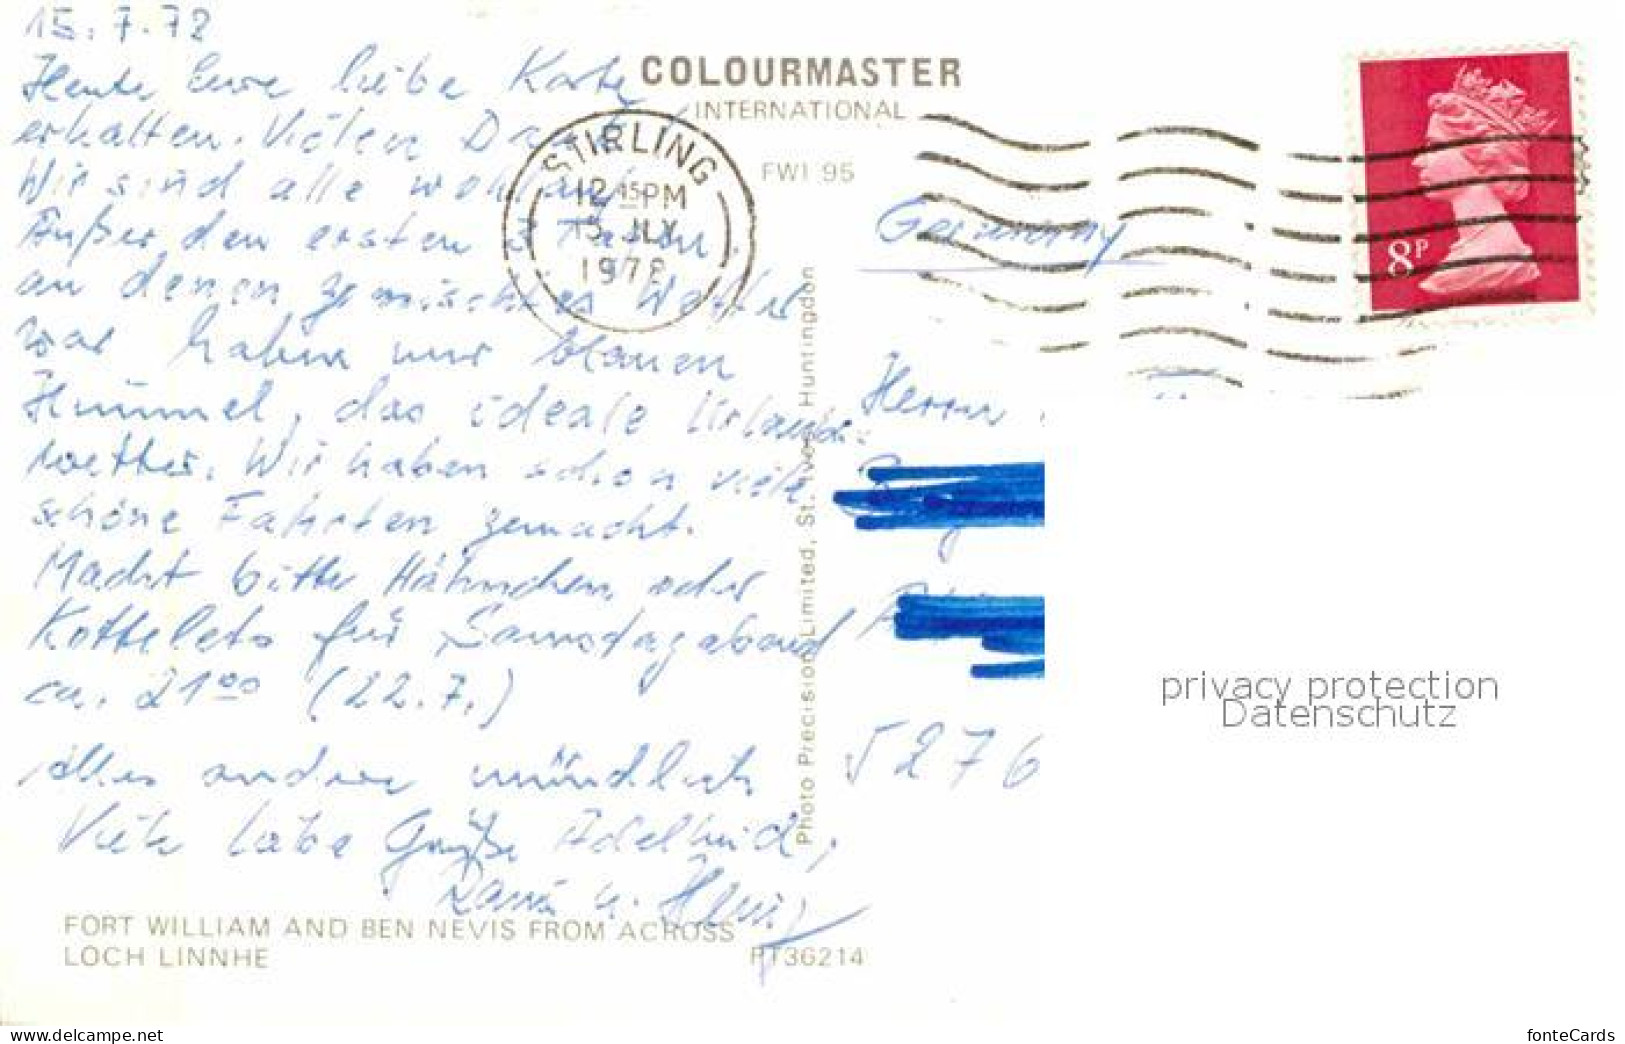 15.7.78
Heute Eure liebe Karte
erhalten. Vielen Dank!
Wir sind alle wohlauf.
Außer den ersten 2 Tagen
an denen gemischtes Wetter
war haben wir blauen
Himmel, das ideale Urlaubs-
wetter. Wir haben schon viele
schöne Fahrten gemacht.
Macht bitte Hähnchen oder
Kotteletts für Samstagabend
ca. 21⁰⁰ (22.7.)
Alles andere mündlich
Viele liebe Grüße Adelheid,
u.
COLOURMASTER
INTERNATIONAL
FWI 95
STIRLING
12 15 PM
15 JLY
1978
8P
Germany
Herrn
5276
Photo Precision Limited, St. Ives, Huntingdon
FORT WILLIAM AND BEN NEVIS FROM ACROSS
LOCH LINNHE
PT36214
privacy protection
Datenschutz
www.delcampe.net
fonteCards